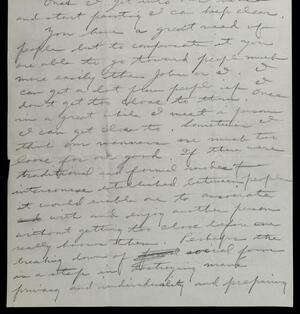 Once I get into our
and start painting I can keep clear.
You have a great need of
people but to compensate it you
are able to go toward people much
more easily than John or I. I
can get a lot from people if I
don't get too close to them. Once
in a great while I meet a person
I can get close to. Sometimes I
that our manners are much too
loose for our good. If there were
traditional and formal modes of
intercourse established between people
it would enable one to associate
with and enjoy another person
without getting too close before one
really knows them. Perhaps the
breaking down of social form
as a step in destroying man's
privacy and individuality and preparing